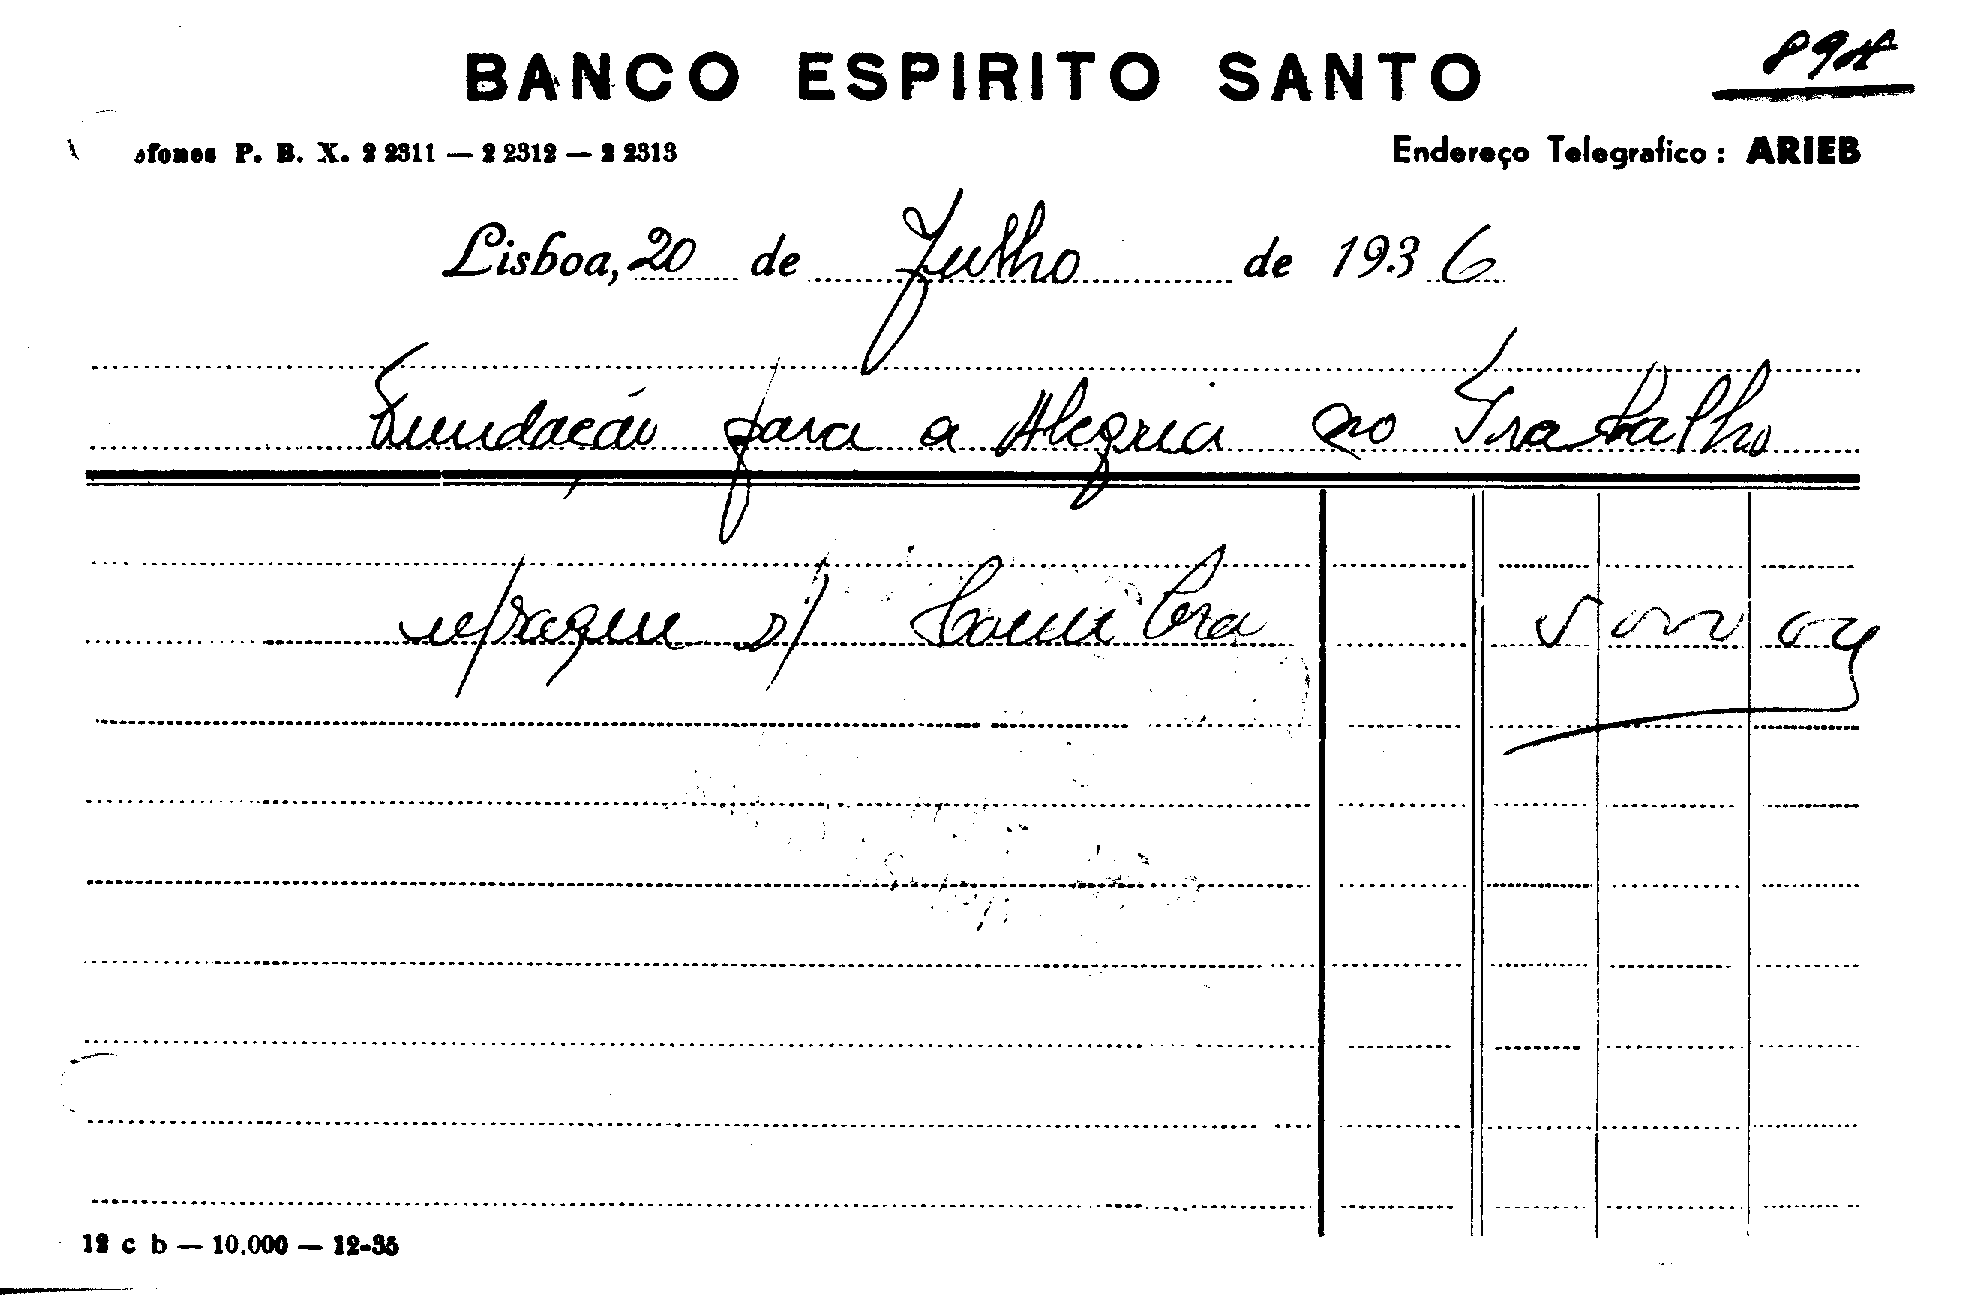 BANCO ESPIRITO SANTO
efones P. B. X. 2 2311 — 2 2312 — 2 2313
Endereço Telegrafico: ARIEB
Lisboa, 20 de Julho de 1936
Fundação para a Alegria no Trabalho
s/ Coimbra
12 c b — 10.000 — 12-35